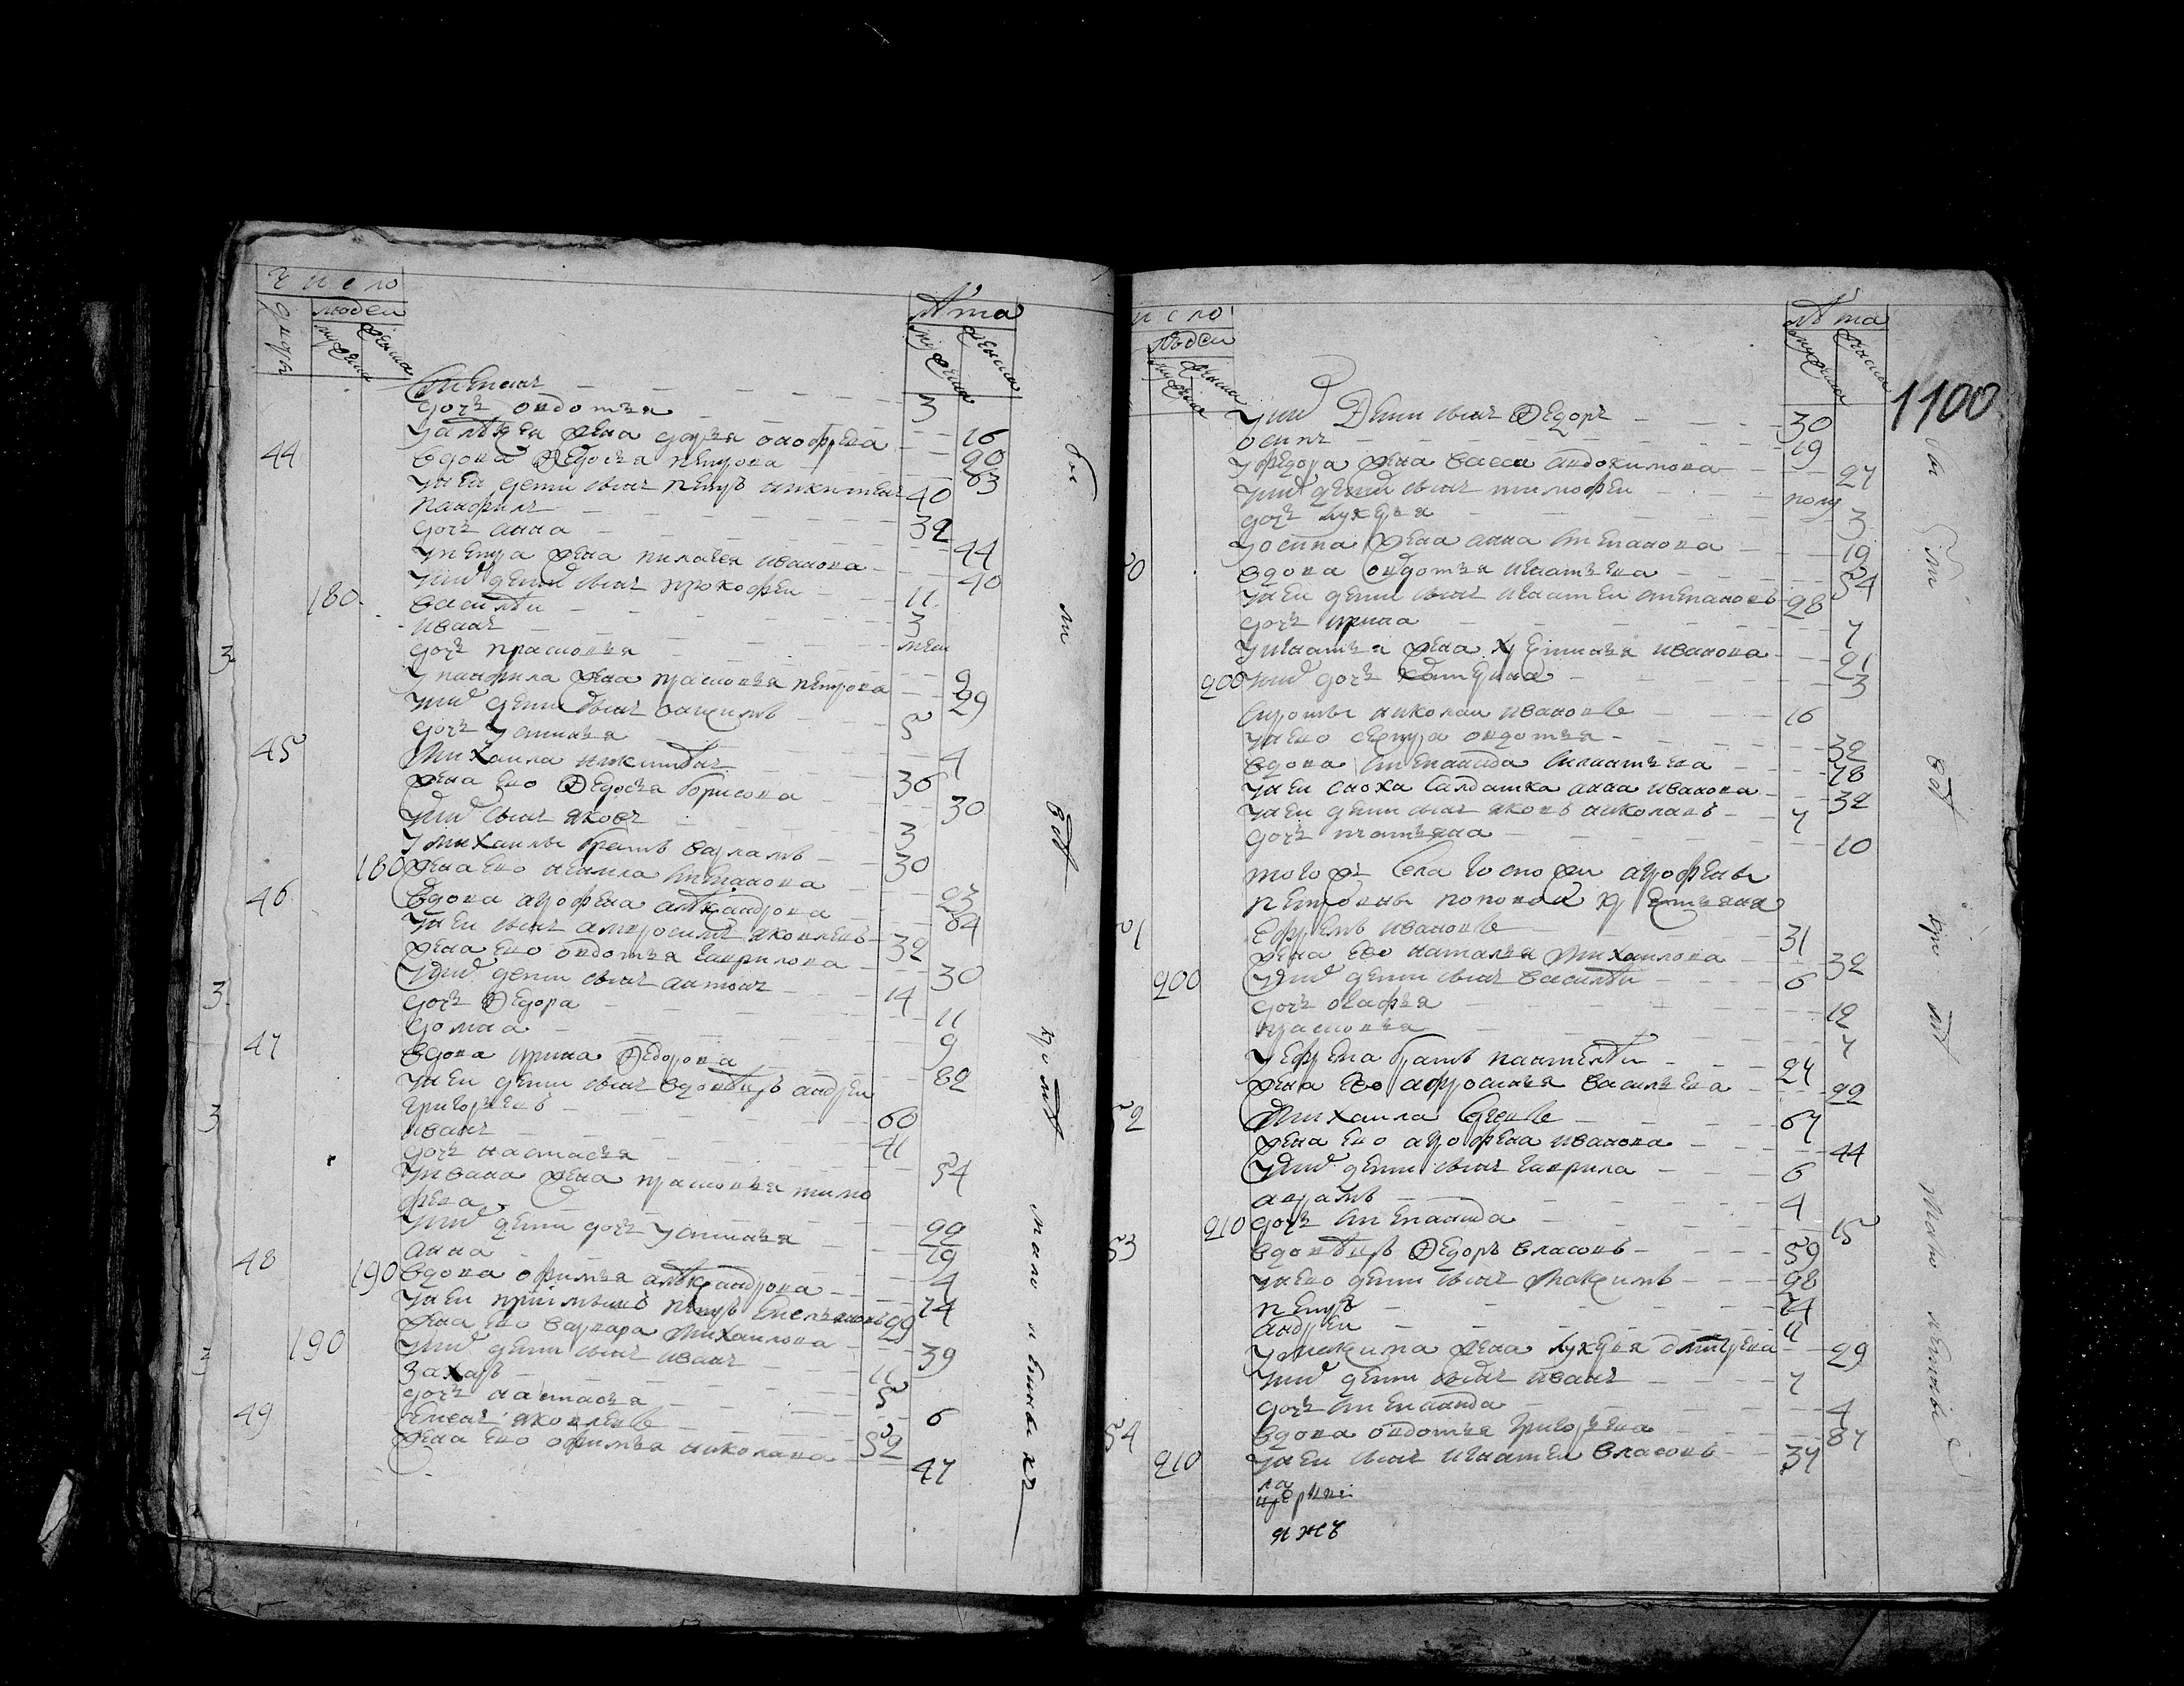 число
двор
людеи
муска
женска
лѣта
муска
женска
Степанъ 3
дочь овдотья 16
Уалѣѯея жена дарья онофрева 20
44 вдова Ѳедосья петрова 63
унеи дети сынъ петръ никитенъ 40
панфилъ 32
дочь анна 44
упетра жена пилагея иванова 40
уних дети сынъ прокофеи 11
180 василеи 3
иванъ
дочь прасковья 2
3
упанфила жена прасковья петрова 29
уних дети сынъ маѯимъ 5
дочь устинья 4
45 Михаила никитинъ 36
жена ево Ѳедосья борисова 30
уних сынъ яковъ 3
умихаилы братъ варламъ 30
180 жена ево ненила степанова 23
46 вдова агрофена алѣѯандрова 64
унеи сынъ амвросимъ яковлевъ 32
жена ево овдотья гаврилова 30
уних дети сынъ антонъ 14
3 дочь Ѳедора 11
домна 9
47 вдова ирина Ѳедорова 82
унеи дети сынъ вдовецъ андреи
григорьевъ 60
3 иванъ 41
дочь настасья 54
уивана жена прасковья тимо
фева 22
уних дети дочь устинья 19
анна 4
48 190 вдова офимья алѣѯандрова 74
унеи приимышъ петръ емельяновъ 29
жена ево варвара михаилова 39
190 уних дети сынъ иванъ 11
3 захаръ 5
дочь настасья 6
49 яковлевъ 52
жена ево офимья николаева 47
число
людеи
муска
женска
лѣта
муска
женска
1100
уних дети сынъ Ѳедоръ 30
осипъ 19
уѳедора жена васса авдокимова 27
уних дети сынъ тимофеи полу
дочь лукерья 3
уосипа жена анна степанова 19
вдова овдотья игнатьева 54
унеи дети сынъ игнатеи степановъ 28
дочь ирина 7
уигнатья жена хрестинья иванова 21
200 уних дочь катерина 3
сирота николаи ивановъ 16
унево сестра овдотья 32
вдова степанида игнатьева 78
унеи сноха салдатка анна иванова 32
унеи дети сынъ яковъ николаевъ 7
дочь татьяна 10
тогожъ села госпожи агрофены
петровны поповои крестьяня
ефремъ ивановъ 31
жена ево наталья михаилова 32
200 уних дети сынъ василеи 6
дочь огафья 12
прасковья 7
уефрема братъ пантелеи 24
жена ево афросинья васильева 22
52 Михаила 67
жена ево агрофена иванова 44
уних дети сынъ гаврила 6
аврамъ 4
210 дочь степанида 15
53 вдовецъ Ѳедоръ власовъ 59
унево дети сынъ маѯимъ 28
петръ 24
андреи 11
умаѯима жена лукерья дмитрева 29
уних дети сынъ иванъ 7
дочь степанида 4
54 вдова овдотья григорьева 87
210 унеи сынъ игнатеи власовъ 37